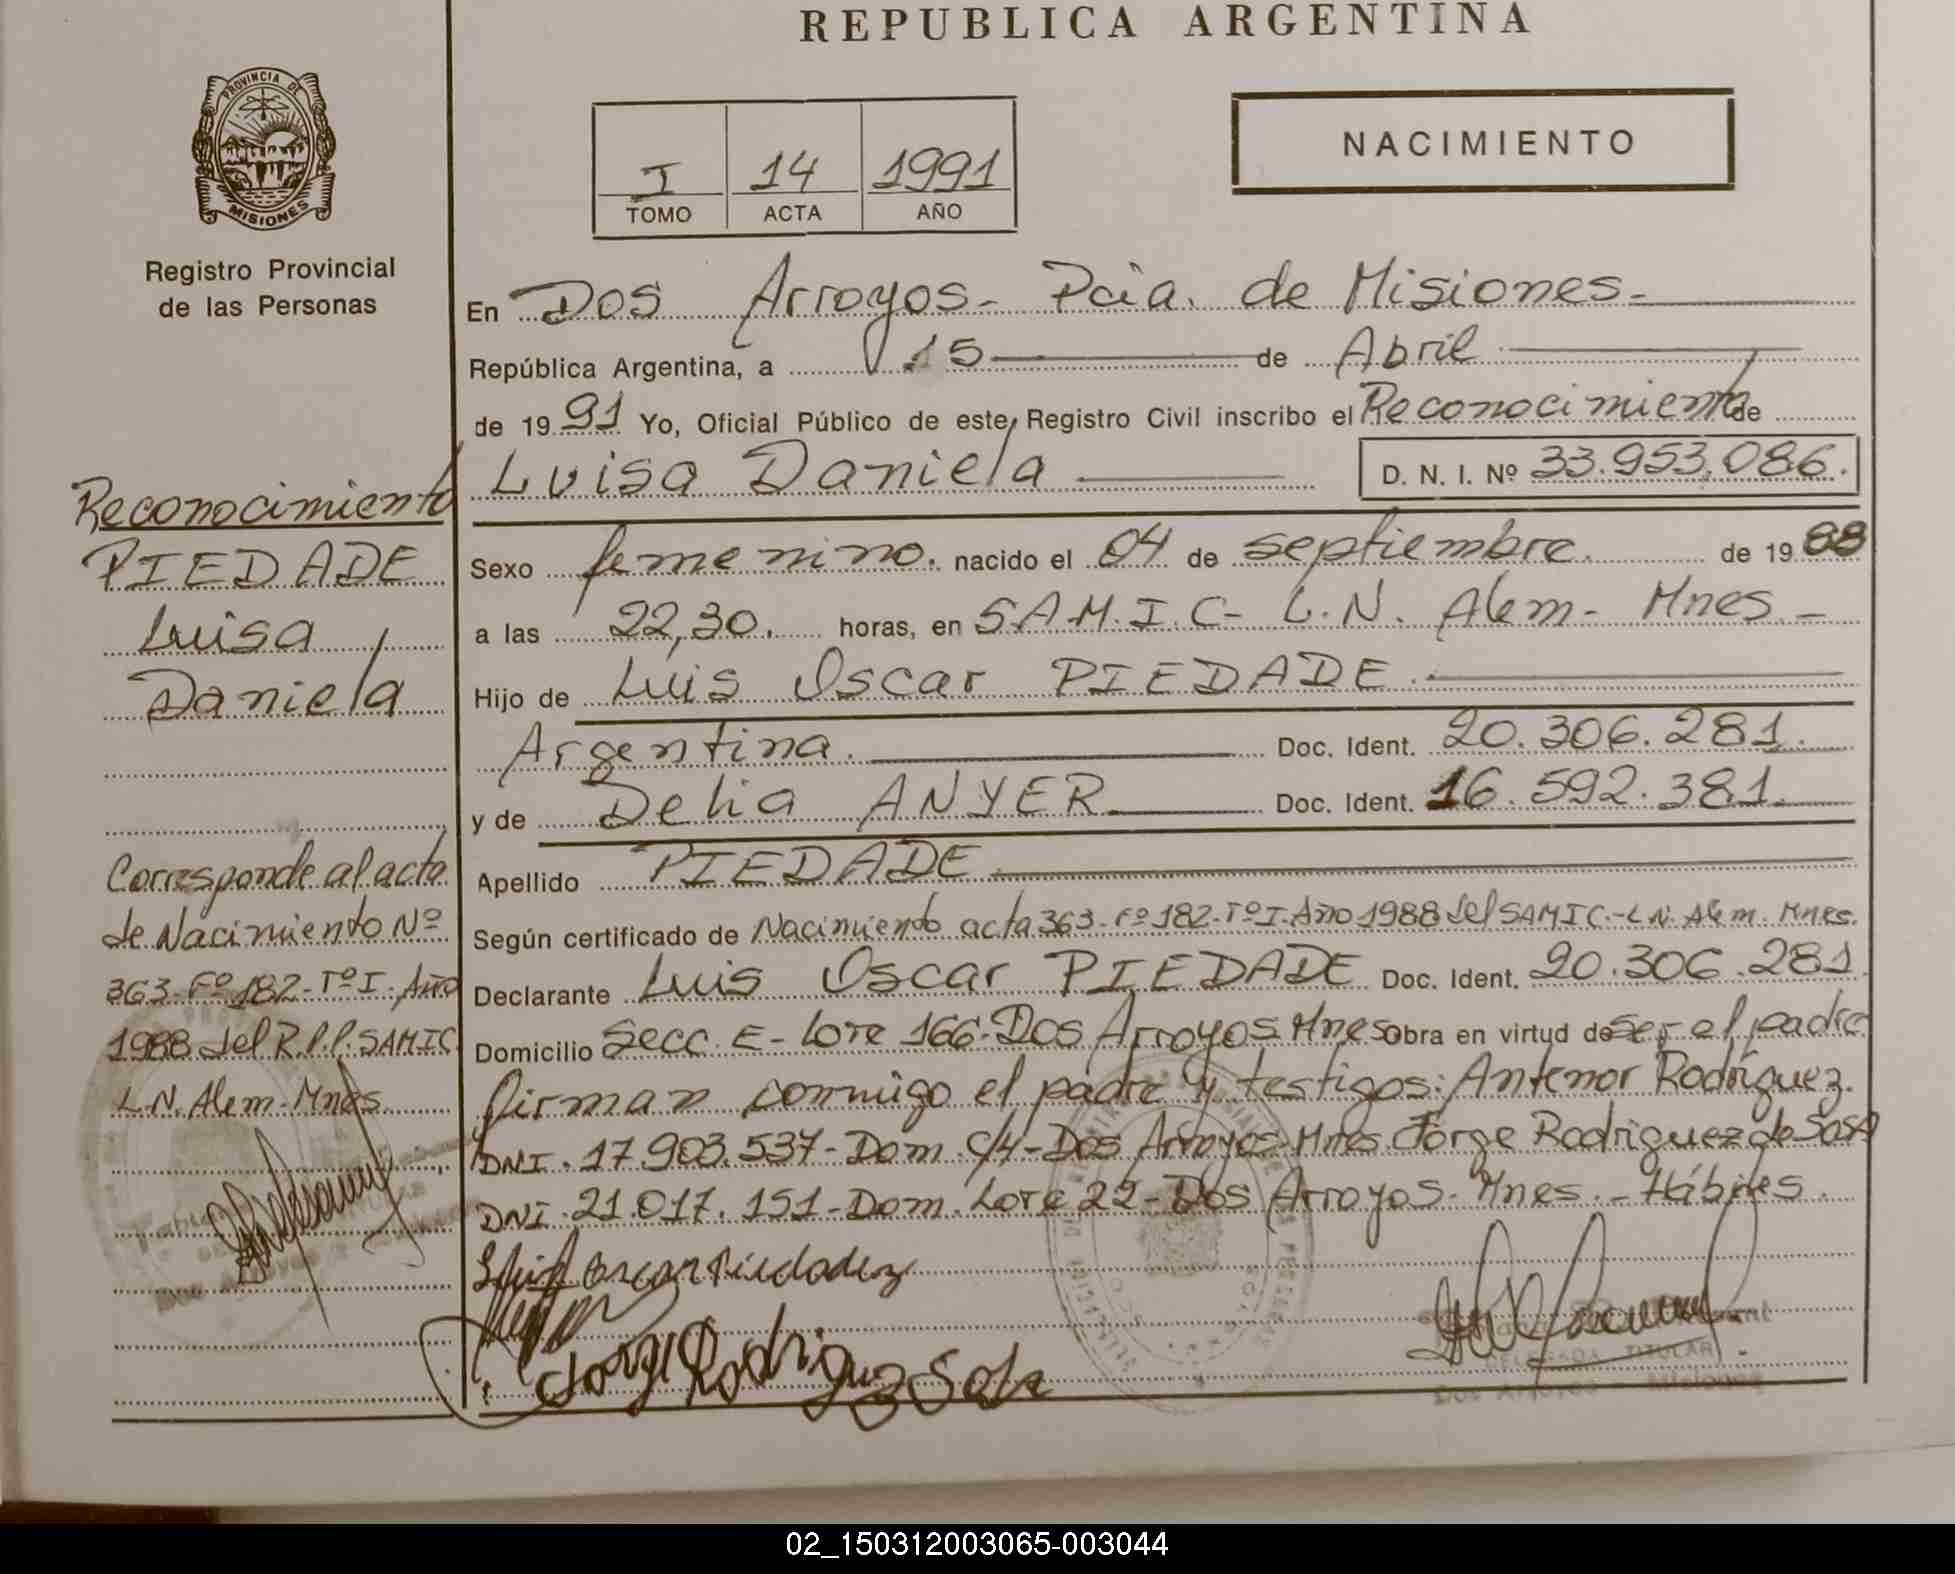 REPUBLICA ARGENTINA
PROVINCIA DE
MISIONES
Registro Provincial
de las Personas
I 14 1991
TOMO ACTA AÑO
NACIMIENTO
En Dos Arroyos - Pcia. de Misiones -
República Argentina, a 15 de Abril
de 1991 Yo, Oficial Público de este Registro Civil inscribo el Reconocimiento de
Luisa Daniela D. N. I. Nº 33.953.086.
Sexo femenino. nacido el 04 de septiembre. de 1988
a las 22,30. horas, en S.A.M.I.C - L.N. Alem - Mnes -
Hijo de Luis Oscar PIEDADE
Argentina. Doc. Ident. 20.306.281.
y de Delia ANYER Doc. Ident. 16.592.381.
Apellido PIEDADE
Según certificado de Nacimiento acta 363 - Fº 182 - Tº I - Año 1988 del SAMIC. - L.N. Alem. Mnes.
Declarante Luis Oscar PIEDADE Doc. Ident. 20.306.281
Domicilio Secc. E - Lote 166 - Dos Arroyos Mnes obra en virtud de ser el padre
firman conmigo el padre y testigos: Antenor Rodríguez.
DNI. 17.903.537 - Dom. C/4 - Dos Arroyos - Mnes. Jorge Rodriguez do SosA
DNI. 21.017.151 - Dom. Lote 22 - Dos Arroyos - Mnes. - Hábiles.
Reconocimiento
PIEDADE
Luisa
Daniela
Corresponde al acta
de Nacimiento Nº
363 - Fº 182 - Tº I - Año
1988 del R.P.P. SAMIC
L.N. Alem - Mnes
Jorge Rodriguez
TITULAR
Dos Arroyos - Misiones
02_150312003065-003044